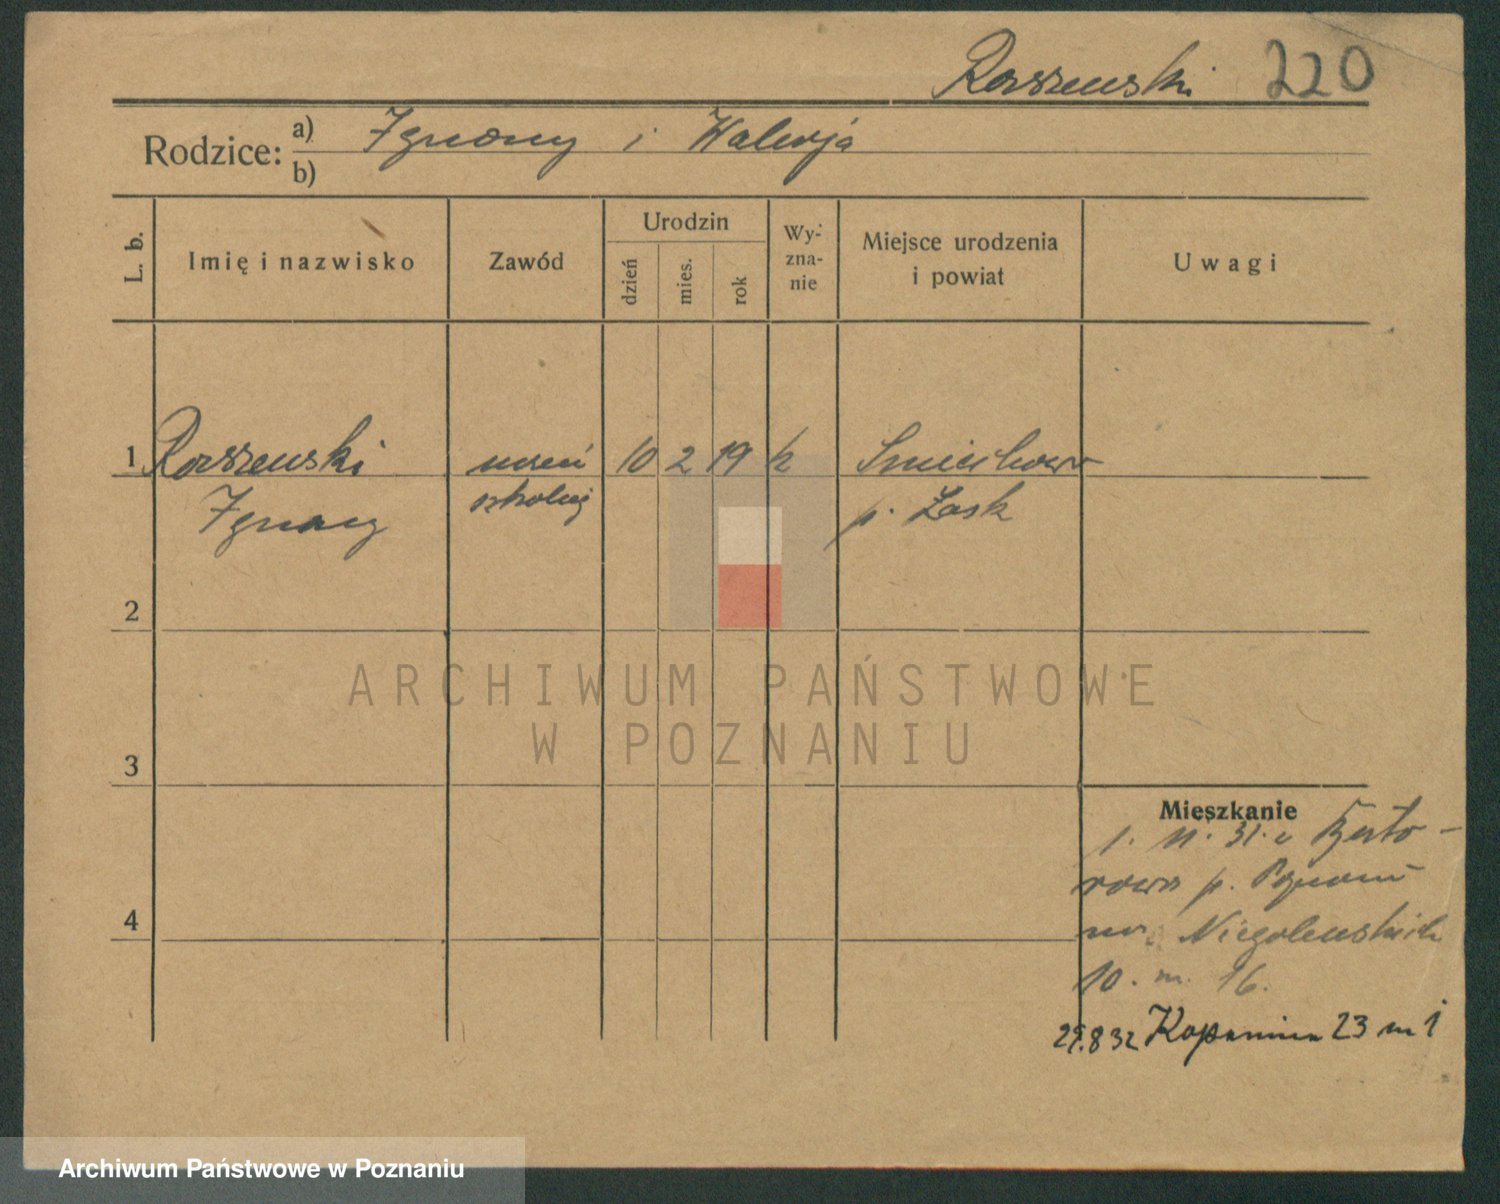 Roszewski 220
Rodzice: a) Ignacy i Walerja
b)
L. b.
Imię i nazwisko
Zawód
Urodzin
dzień
mies.
rok
Wy-
zna-
nie
Miejsce urodzenia
i powiat
Uwagi
1 Roszewski uczeń 10 2 19 k
Ignacy szkolny p. Łask
2
3
4
Mieszkanie
1. 11. 31. z
p.
na Niegolewskich
10. m. 16.
29.8 32 Kopanina 23 m 1
ARCHIWUM PAŃSTWOWE
W POZNANIU
Archiwum Państwowe w Poznaniu